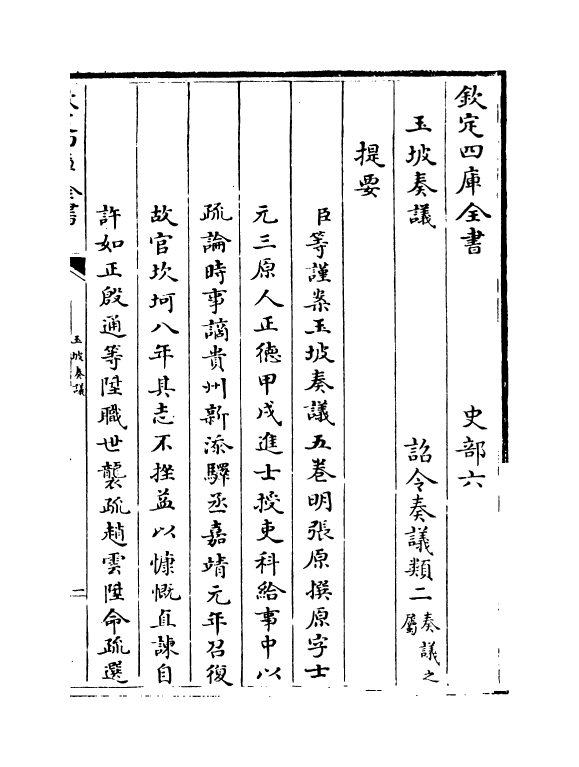 欽定四庫全書　史部六
玉坡奏議　詔令奏議類二 奏議之屬
提要
臣等謹案玉坡奏議五卷明張原撰原字士
元三原人正德甲戌進士授吏科給事中以
疏論時事謫貴州新添驛丞嘉靖元年召復
故官坎坷八年其志不挫益以慷慨直諫自
許如正殷通等陞職世襲疏趙雲陞命疏選
玉坡奏議
一